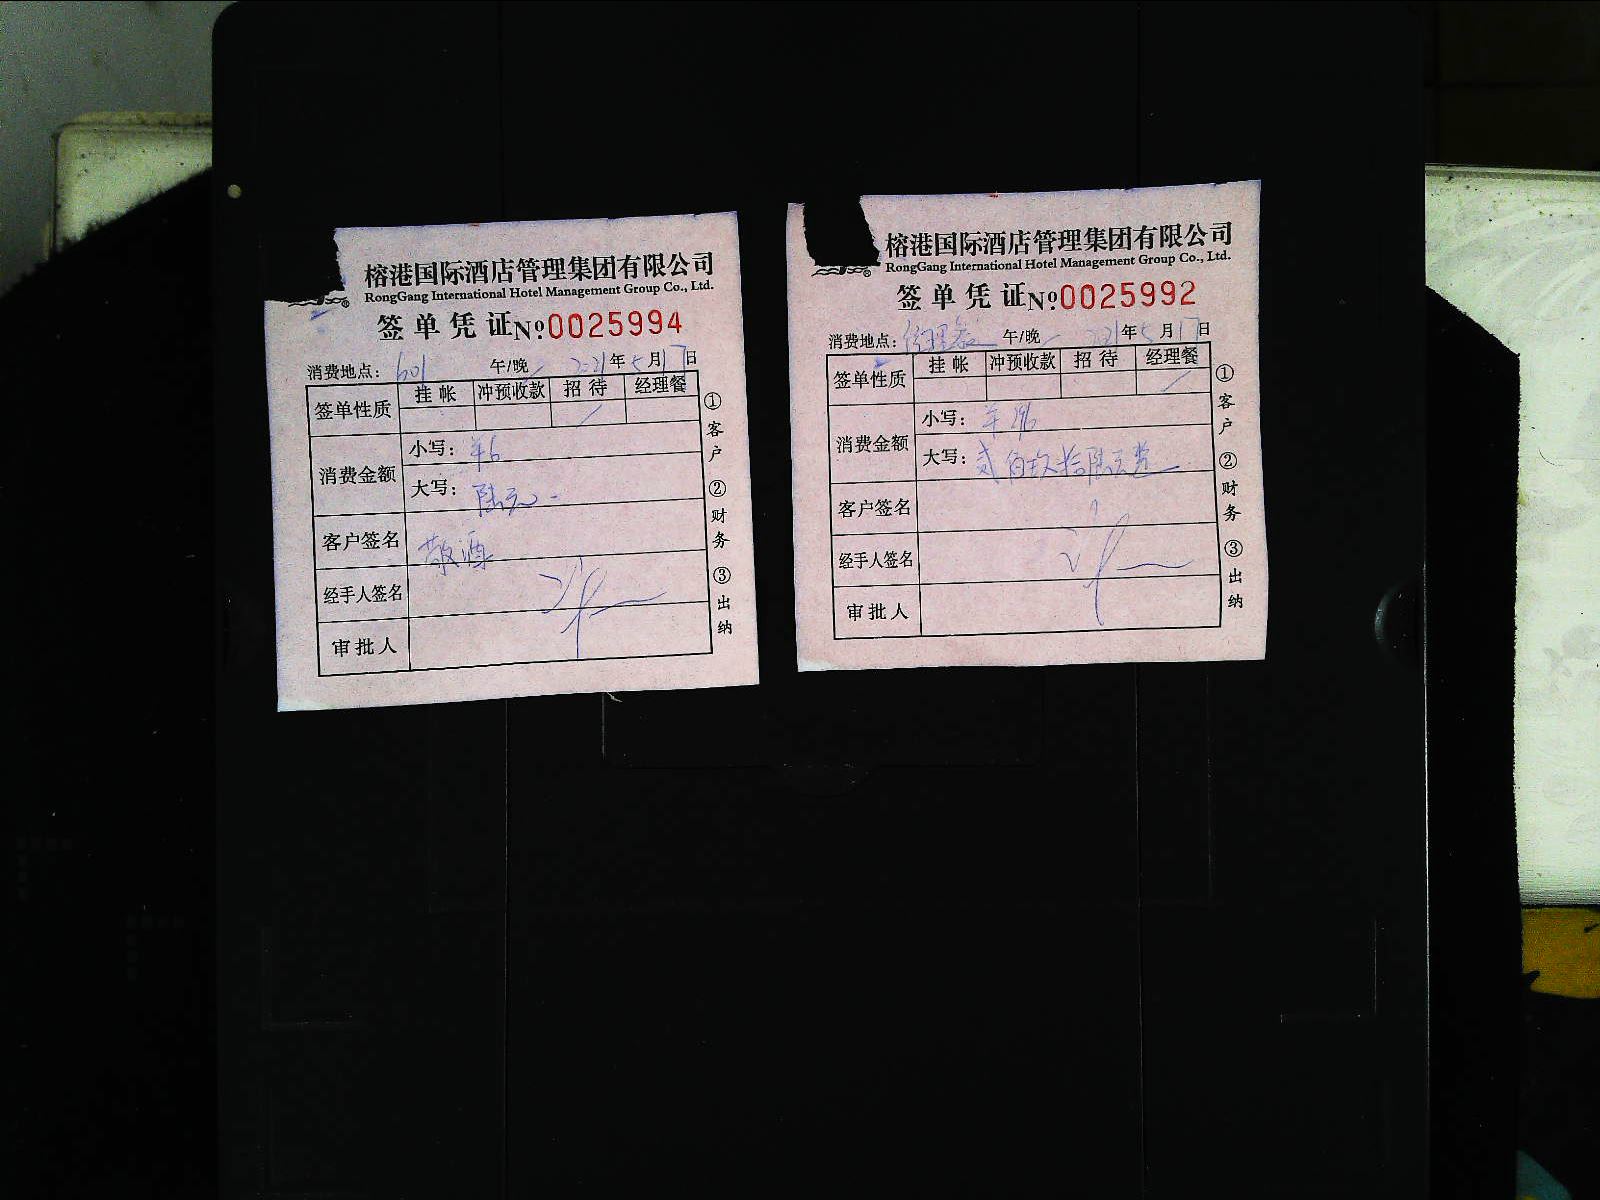 榕港国际酒店管理集团有限公司
RongGang International Hotel Management Group Co., Ltd.
签单凭证 №0025994
消费地点: 601 午/晚 2021年5月17日
签单性质 挂帐 冲预收款 招待 经理餐
消费金额
小写: ¥6
大写: 陆元
客户签名 敬酒
经手人签名
审批人
①客户 ②财务 ③出纳
榕港国际酒店管理集团有限公司
RongGang International Hotel Management Group Co., Ltd.
签单凭证 №0025992
消费地点: 经理餐 午/晚 2021年5月17日
签单性质 挂帐 冲预收款 招待 经理餐
消费金额
小写: ¥296
大写: 贰佰玖拾陆元整
客户签名
经手人签名
审批人
①客户 ②财务 ③出纳